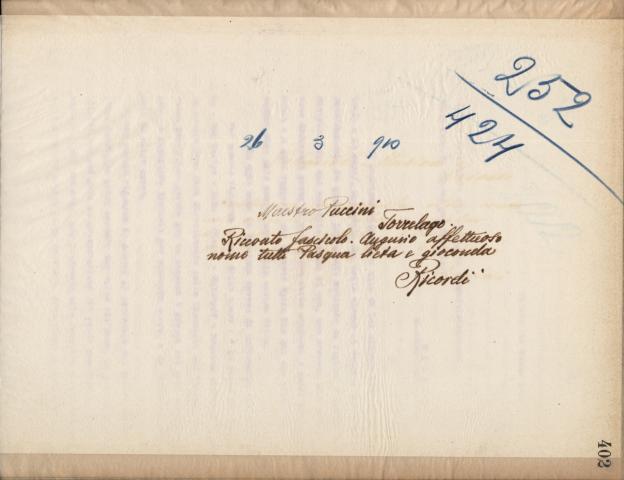 252
424
26 3 910
Maestro Puccini
Torrelago.
Ricevuto fascicolo. Augurio affettuoso
nome tutti Pasqua lieta e gioconda
Ricordi
402